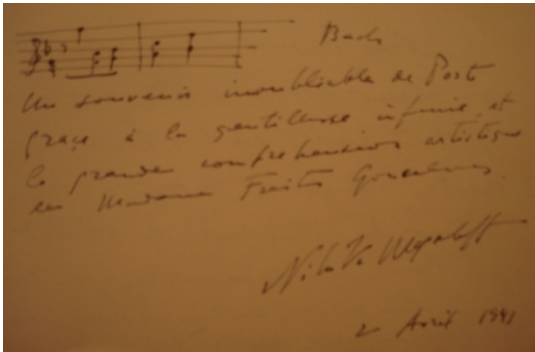 Bach
Un souvenir inoubliable de Porto
grâçe à la gentillesse infinie et
la grande comprehension artistique
de Madame Freitas Gonçalves.
Nikita Magaloff
2 Avril 1941